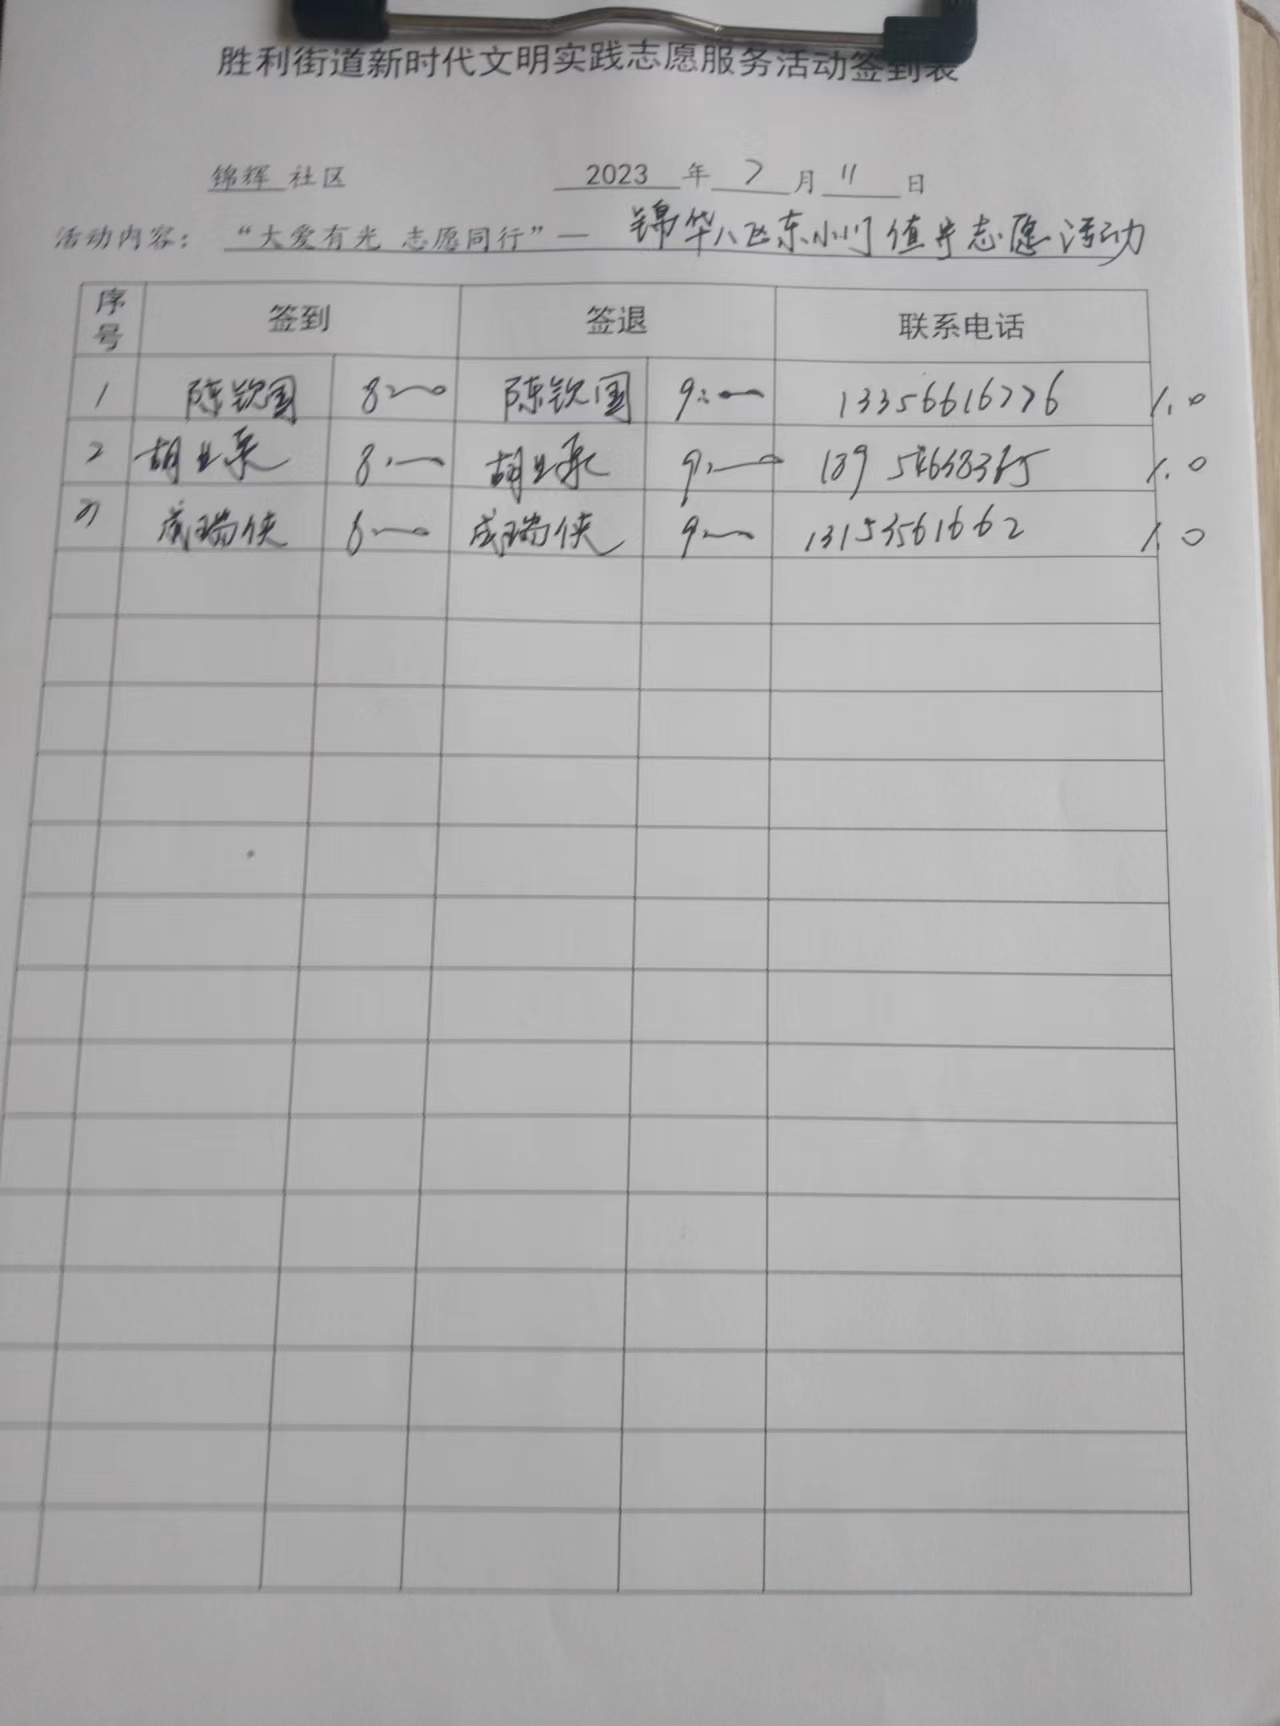 胜利街道新时代文明实践志愿服务活动签到表
锦辉 社区 2023 年 7 月 11 日
活动内容： “大爱有光 志愿同行”— 锦华八区东小门值守志愿活动
序号 签到 签退 联系电话
1 陈钦国 8:00 陈钦国 9:00 13356616776 1.0
2 胡业承 8:00 胡业承 9:00 1.0
3 成瑞侠 8:00 成瑞侠 9:00 13153561662 1.0